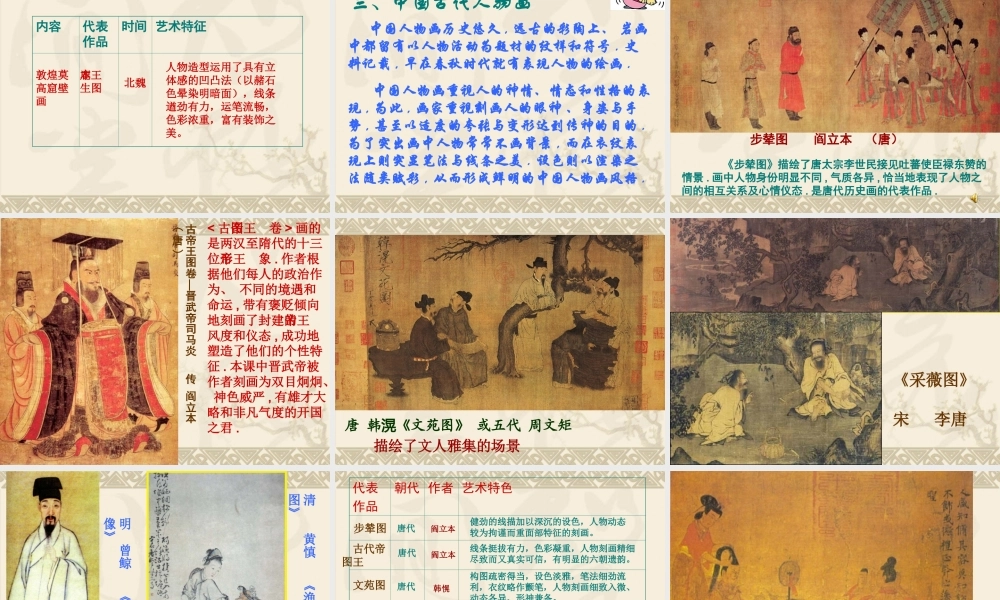 内容 代表作品 时间 艺术特征
敦煌莫
高窟壁
画
北魏
人物造型运用了具有立
体感的凹凸法（以赭石
色晕染明暗面），线条
遒劲有力，运笔流畅，
色彩浓重，富有装饰之
美。
三、中国古代人物画
中国人物画历史悠久．远古的彩陶上、岩画
中都留有以人物活动为题材的纹样和符号．史
料记载，早在春秋时代就有表现人物的绘画．
中国人物画重视人的神情、情态和性格的表
现，为此，画家重视刻画人的眼神、身姿与手
势，甚至以适度的夸张与变形达到传神的目的．
为了突出画中人物常常不画背景，而在衣纹表
现上则突显笔法与线条之美．设色则以渲染之
法随类赋彩，从而形成鲜明的中国人物画风格．
步辇图 阎立本 （唐）
《步辇图》描绘了唐太宗李世民接见吐蕃使臣禄东赞的
情景．画中人物身份明显不同，气质各异，恰当地表现了人物之
间的相互关系及心情仪态．是唐代历史画的代表作品．
古帝王图卷—晋武帝司马炎 传 阎立本
（唐）
是两汉至隋代的十三
象．作者根
据他们每人的政治作
为、不同的境遇和
命运，带有褒贬倾向
地刻画了封建
风度和仪态，成功地
塑造了他们的个性特
征．本课中晋武帝被
作者刻画为双目炯炯、
神色威严，有雄才大
略和非凡气度的开国
之君．
唐 韩滉《文苑图》 或五代 周文矩
描绘了文人雅集的场景
《采薇图》
宋 李唐
明 曾鲸
像》
清 黄慎
图》
代表作品 朝代 作者 艺术特色
步辇图 唐代 阎立本
健劲的线描加以深沉的设色，人物动态
较为拘谨而重面部特征的刻画。
古代帝
图王 唐代 阎立本
线条挺拔有力，色彩凝重，人物刻画精细
尽致而又真实可信，有明显的六朝遗韵。
文苑图 唐代 韩愰
构图疏密得当，设色淡雅，笔法细劲流
利，衣纹略作颤笔，人物刻画细致入微、
动态各异、形神兼备。